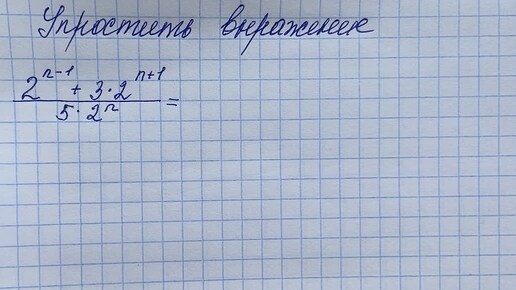 Упростить выражение
2^{n-1} + 3·2^{n+1}
5·2^n =